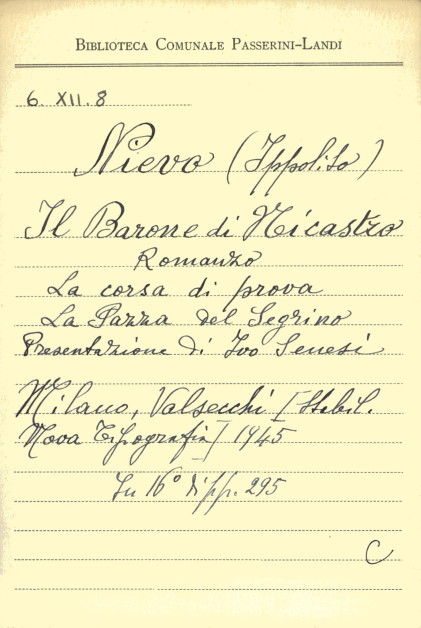 BIBLIOTECA COMUNALE PASSERINI-LANDI
6. XII. 8
Nievo (Ippolito)
Il Barone di Nicastro
Romanzo
La corsa di prova
La Pazza del Segrino
Presentazione di Ivo Senesi
Milano, Valsecchi [Stabil.
Nova Tipografia] 1945
In 16° di pp. 295
C